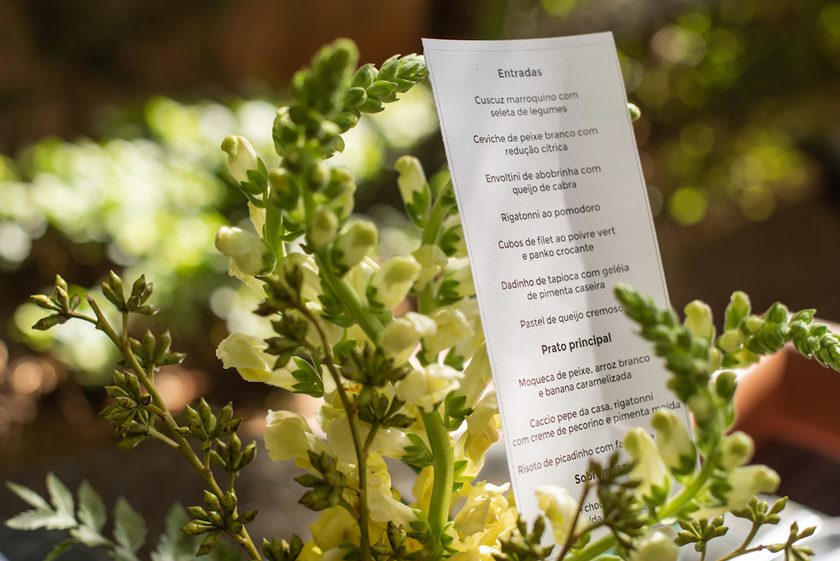 Entradas
Cuscuz marroquino com
seleta de legumes
Ceviche de peixe branco com
redução cítrica
Envoltini de abobrinha com
queijo de cabra
Rigatonni ao pomodoro
Cubos de filet ao poivre vert
e panko crocante
Dadinho de tapioca com geléia
de pimenta caseira
Pastel de queijo cremoso
Prato principal
Moqueca de peixe, arroz branco
e banana caramelizada
Caccio pepe da casa, rigatonni
com creme de pecorino e pimenta moida
Risoto de picadinho com